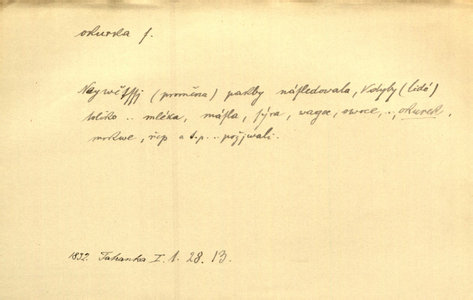 okurka f.
Naywětssj (proměna) pakby následovala, kdyby (lidé)
toliko .. mléka, másla, sýra, wagec, owoce, .., okurek,
mrkwe, řep a t.p. .. požjwali.
1832. Tahanka I. 1. 28. 13.